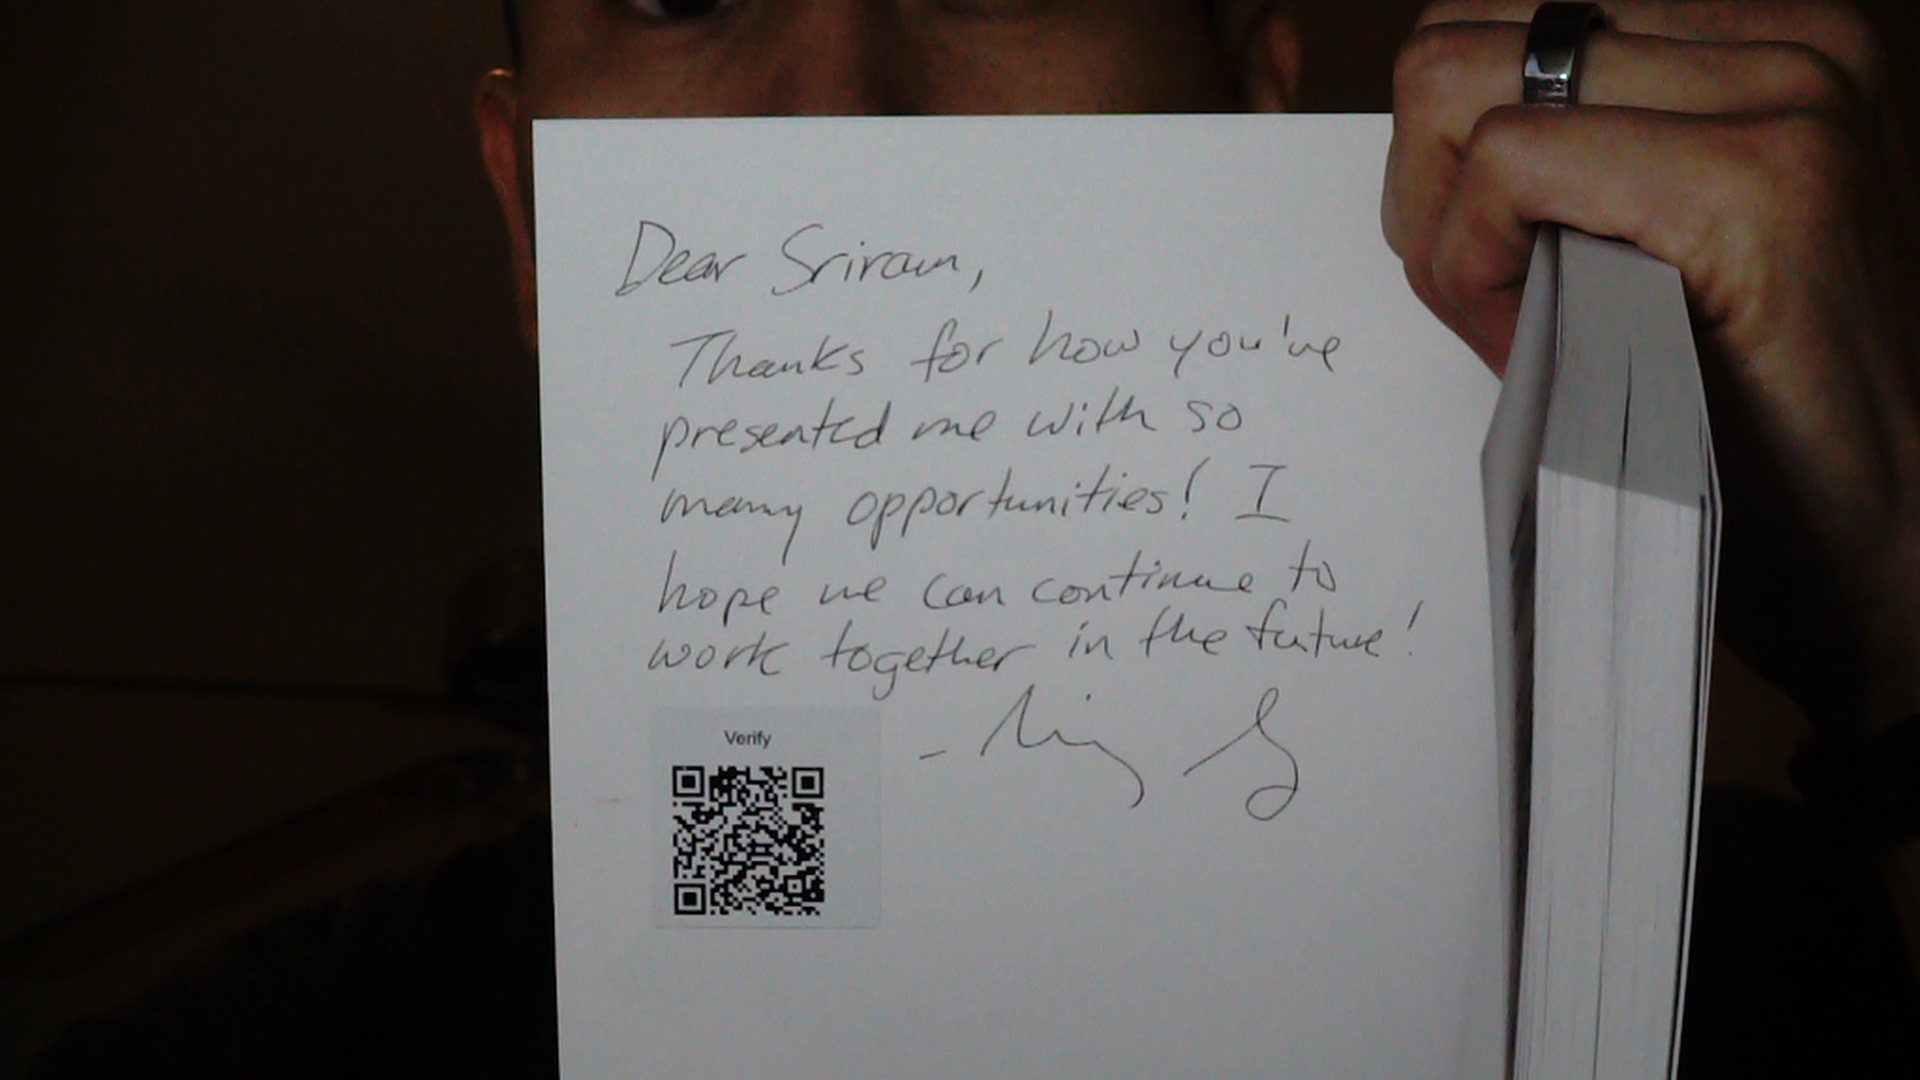 Dear Sriram,
Thanks for how you've
presented me with so
many opportunities! I
hope we can continue to
work together in the future!
Verify